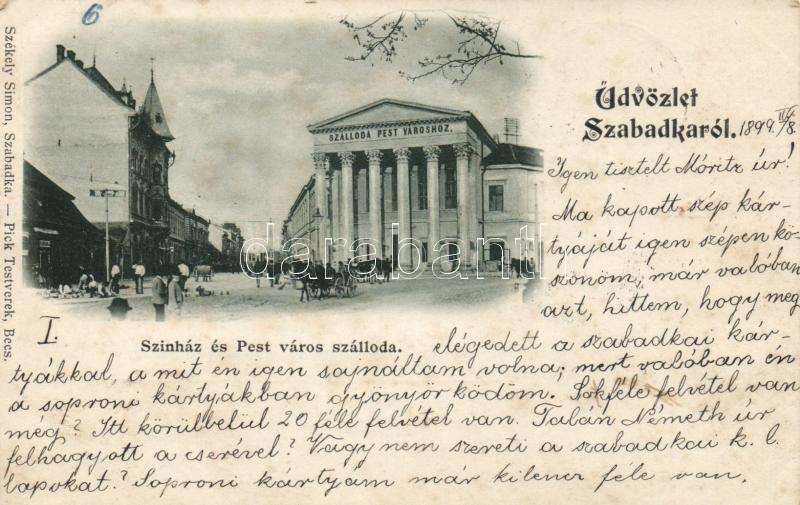 6
Székely Simon, Szabadka. — Pick Testverek, Becs.
SZÁLLODA PEST VÁROSHOZ.
darabanth.com
Üdvözlet
Szabadkaról. 1899. III/8.
Igen tisztelt Móritz úr!
Ma kapott szép kár-
tyáját igen szépen kö-
szönöm, már valóban
azt, hittem, hogy meg
I.
Szinház és Pest város szálloda.
elégedett a szabadkai kár-
tyákkal, a mit én igen sajnáltam volna; mert valóban én
a soproni kártyákban gyönyörködöm. Sokféle felvétel van
meg? Itt körülbelül 20 féle felvétel van. Talán Németh úr
felhagyott a cserével? Vagy nem szereti a szabadkai k. l.
lapokat? Soproni kártyám már kilencz féle van.